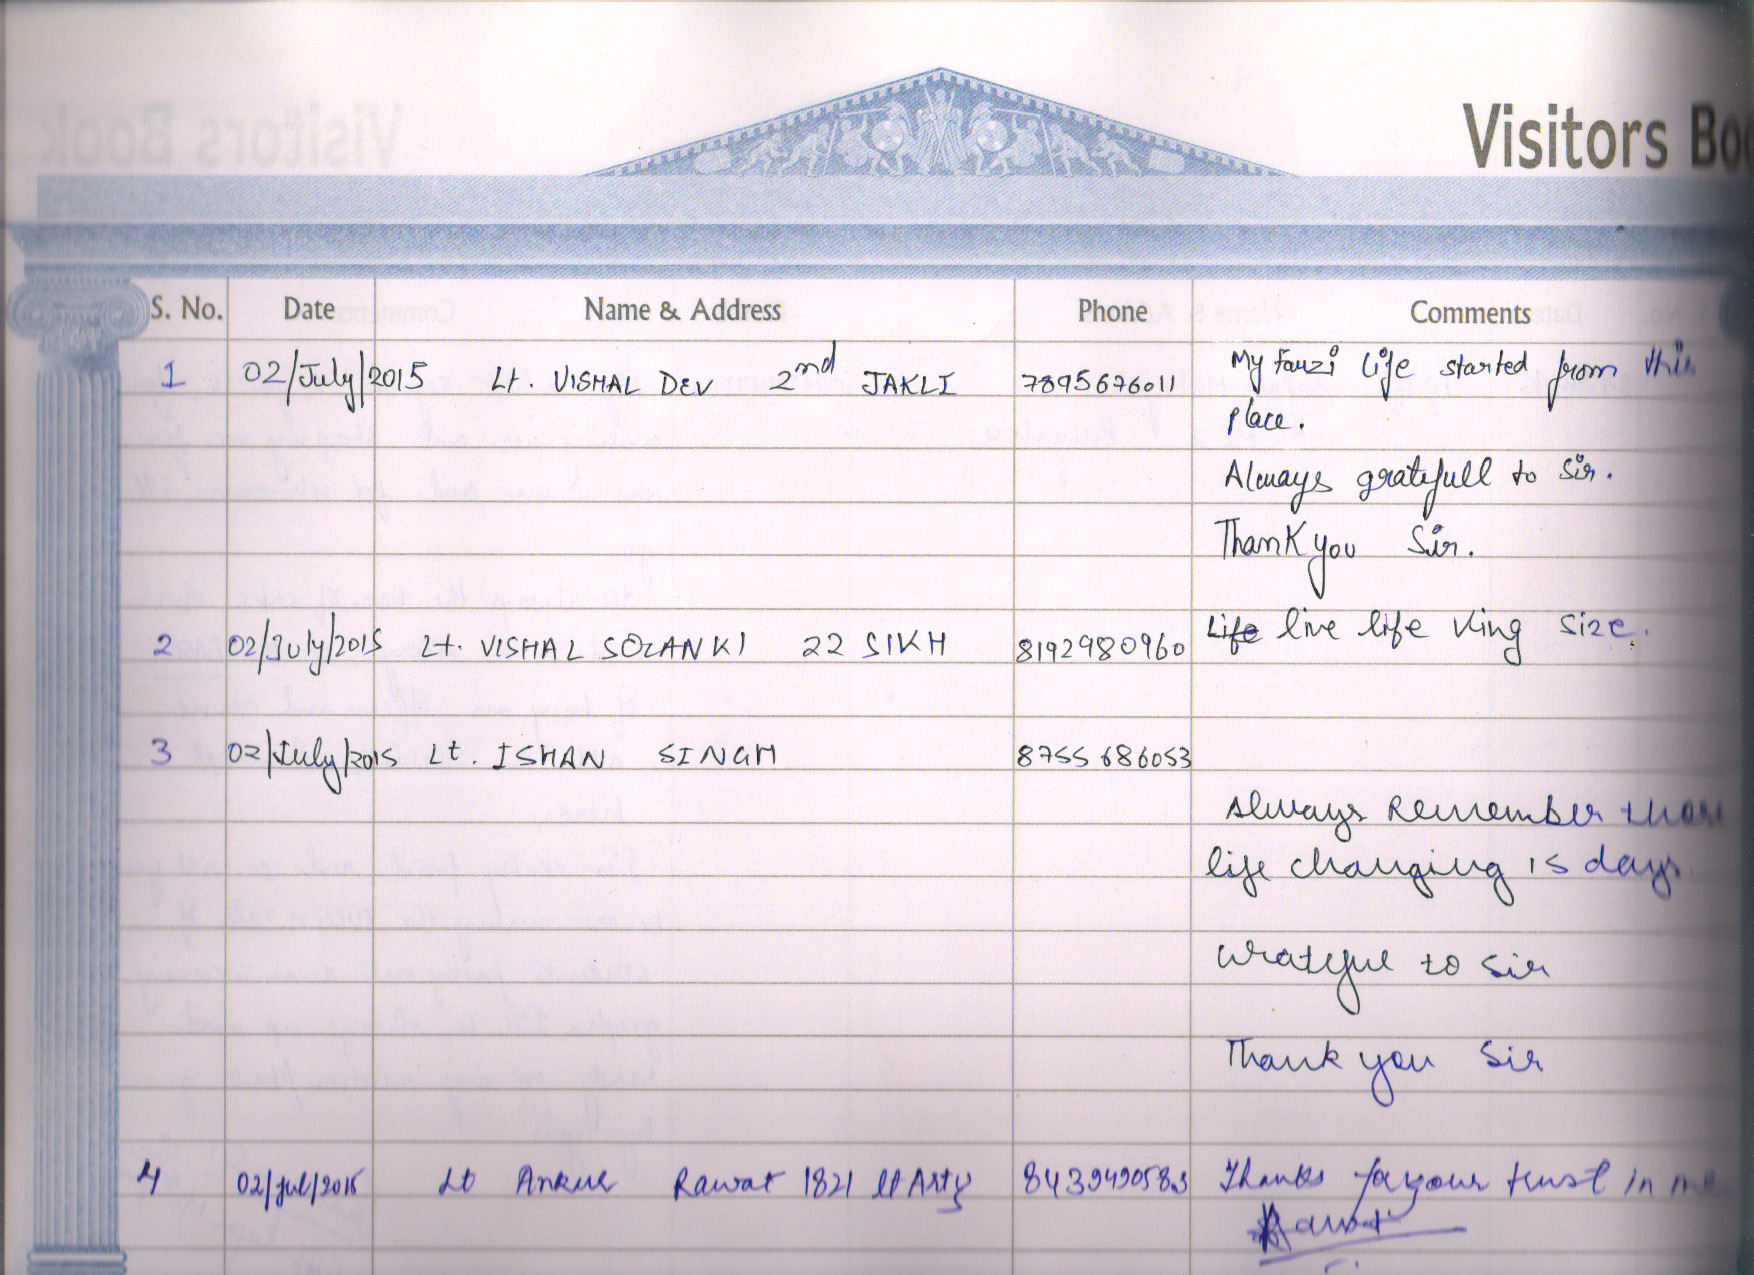 Visitors Boo
S. No. Date Name & Address Phone Comments
1 02/July/2015 Lt. VISHAL DEV 2nd JAKLI 7895676011 My Fauzi life started from this
place.
Always gratefull to Sir.
Thank you Sir.
2 02/July/2015 Lt. VISHAL SOLANKI 22 SIKH 8192980960 Life live life King Size.
3 02/July/2015 Lt. ISHAN SINGH 8755686053
Always Remember those
life changing 15 days
Grateful to Sir
Thank you Sir
4 02/Jul/2015 Lt Ankur Rawat 1821 Lt Arty 8439490583 Thanks for your trust in me
Rawat